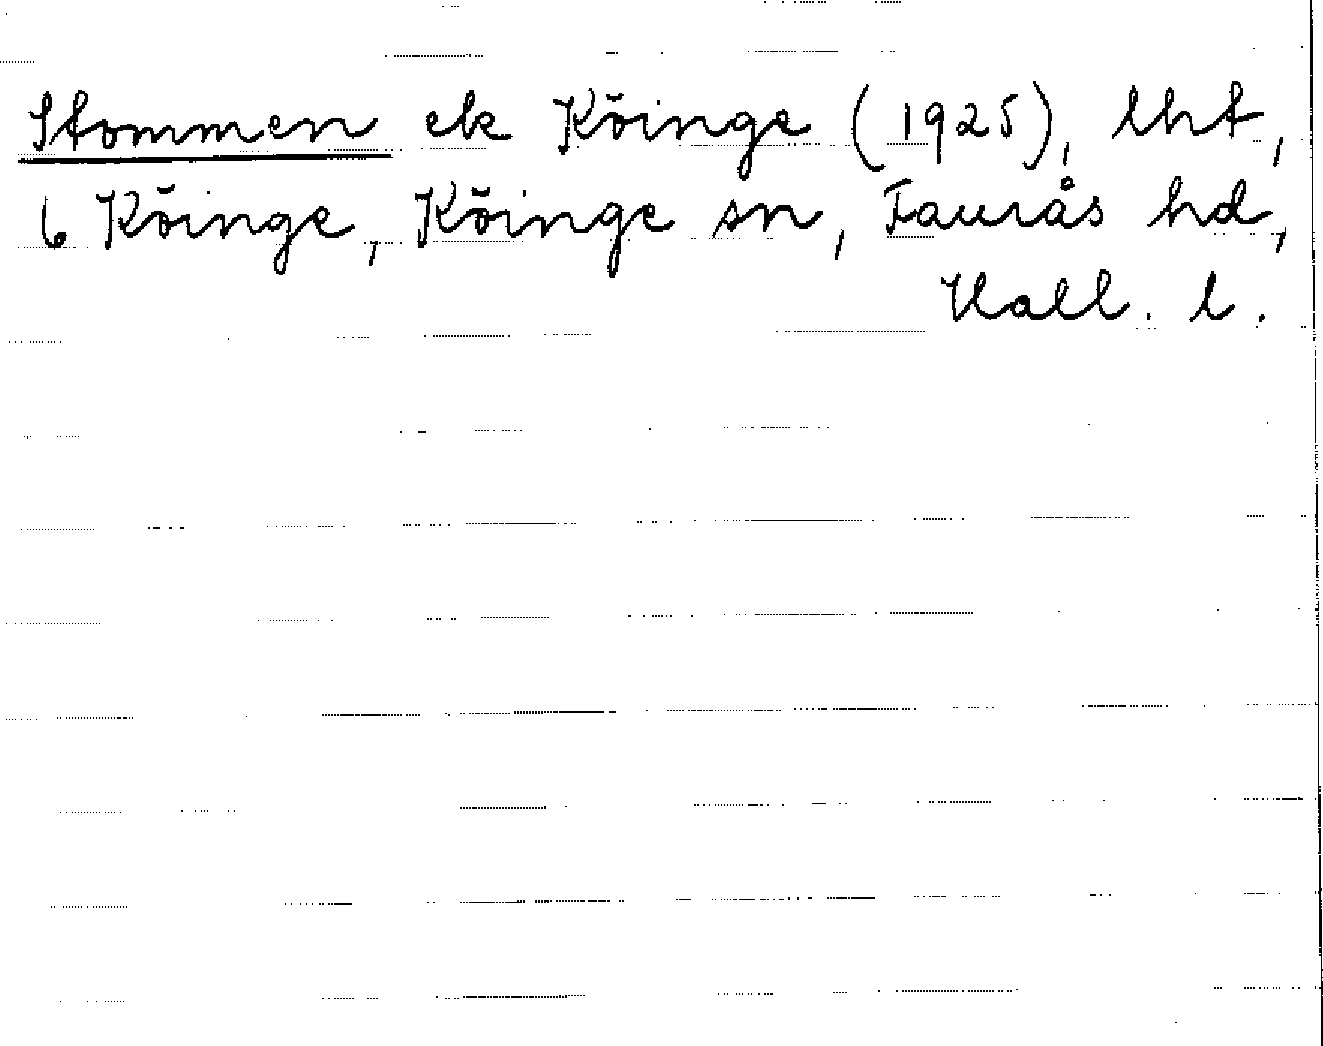 Stommen ek Köinge (1925), lht,
6 Köinge, Köinge sn, Faurås hd,
Hall. l.